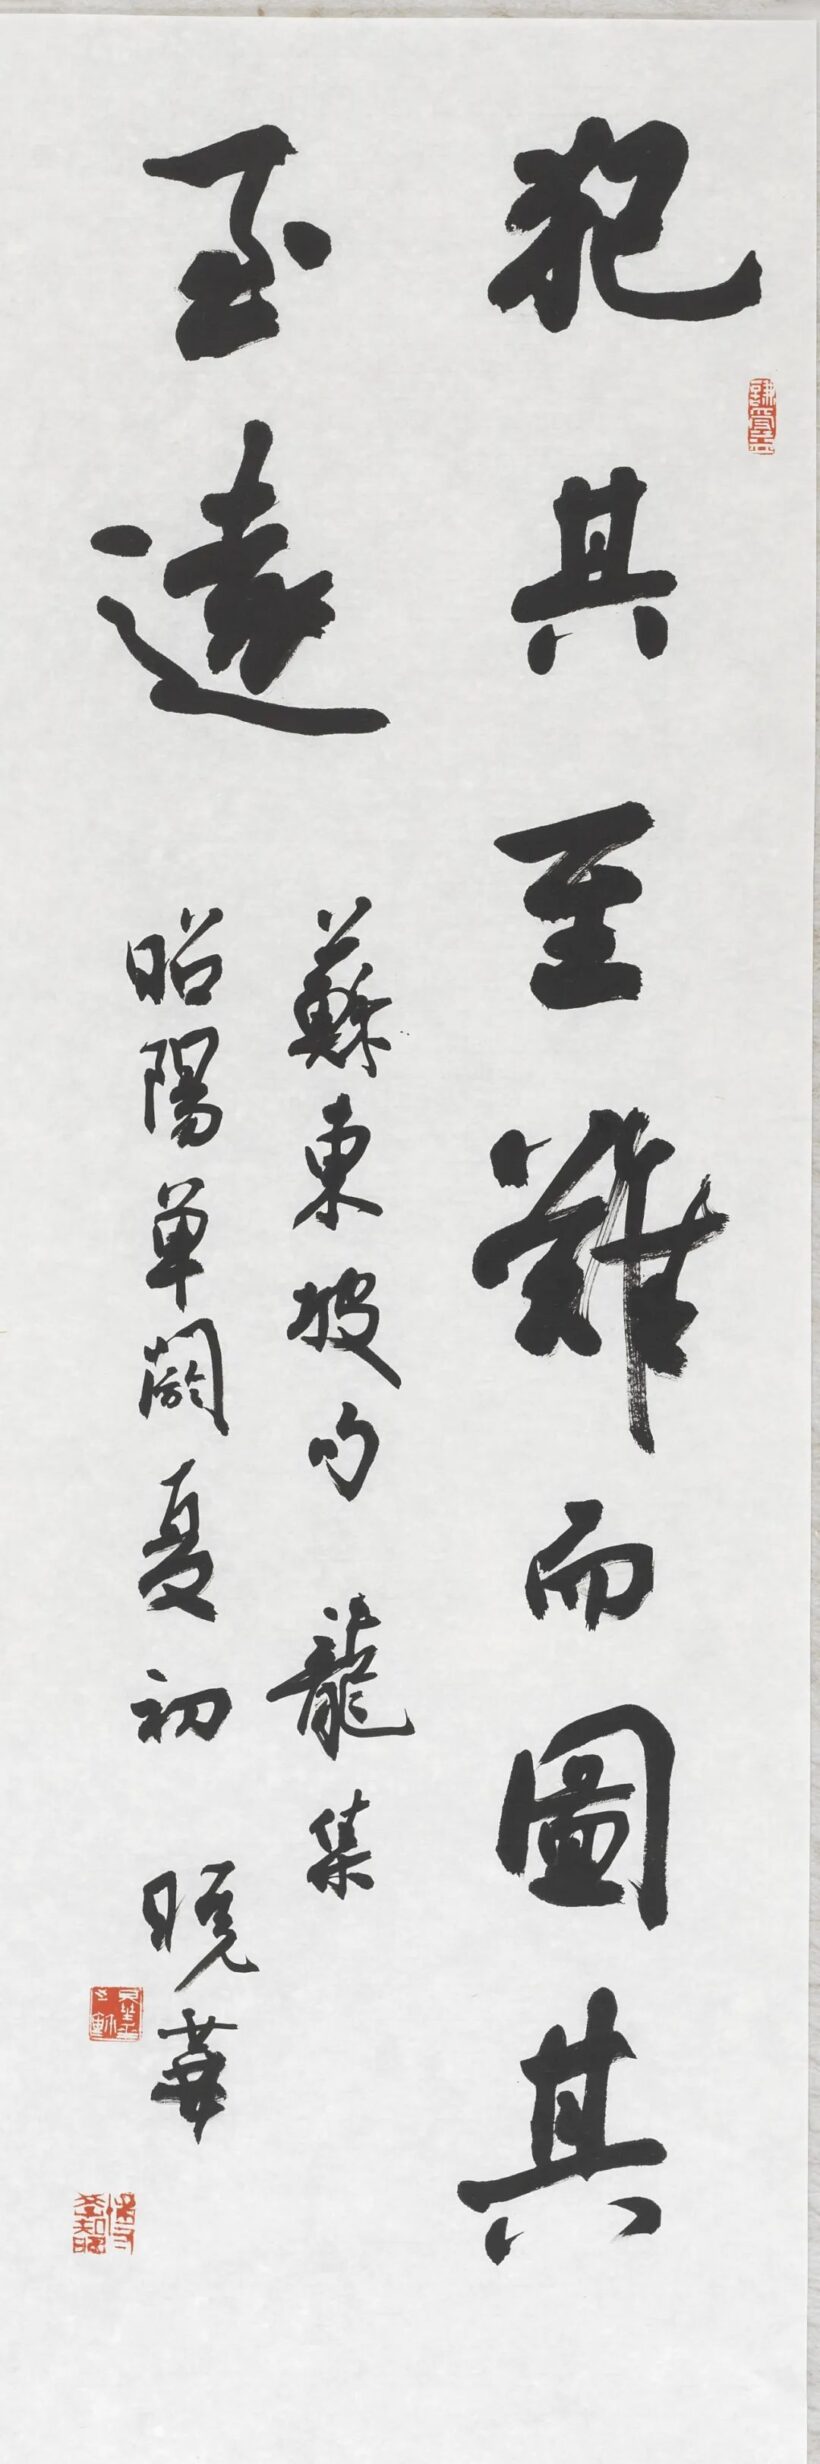 犯其至難而圖其
至遠
蘇東坡句 龍集
昭陽單閼夏初 曉華
謙受益